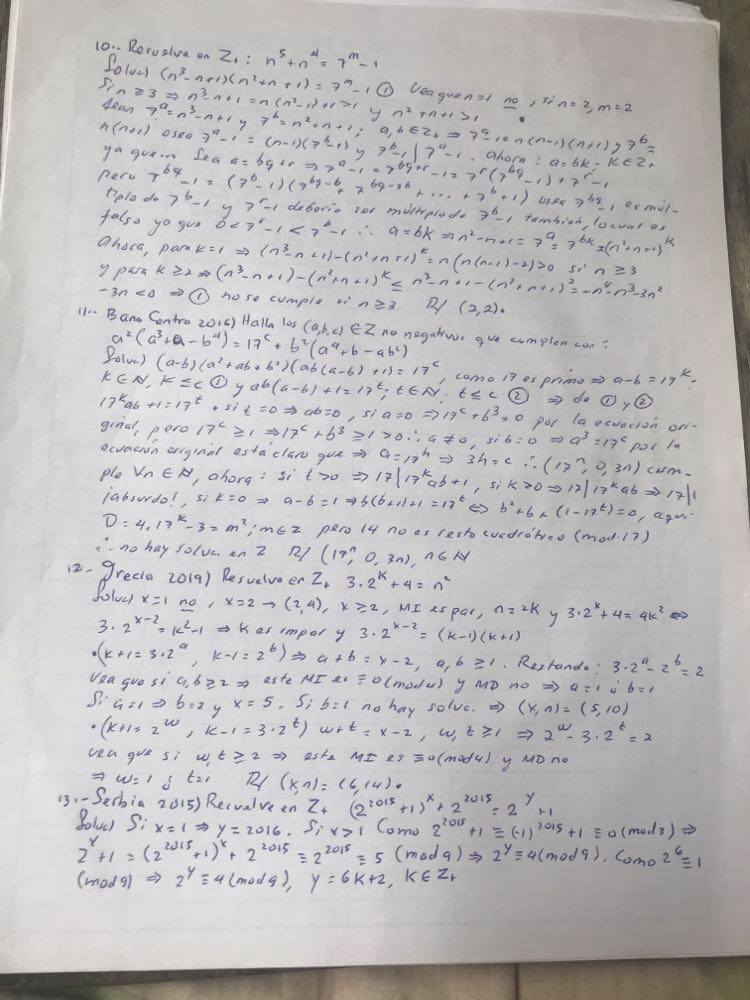 10.- Resuelve en Z+: n⁵+n⁴=7ᵐ-1
Soluc) (n³-n+1)(n²+n+1)=7ᵐ-1 ① Vea que n=1 no, si n=2, m=2
Si n≥3 ⇒ n³-n+1=n(n²-1)+1>1 y n²+n+1>1.
sean 7ᵃ=n³-n+1 y 7ᵇ=n²+n+1; a,b∈Z+ ⇒ 7ᵃ-1=n(n-1)(n+1) y 7ᵇ=
n(n+1) osea 7ᵃ-1=(n-1)(7ᵇ-1) y 7ᵇ-1|7ᵃ-1. Ahora: a=bk- k∈Z+
ya que.. Sea a=bq+r ⇒ 7ᵃ-1=7^(bq+r)-1=7ʳ(7^(bq)-1)+7ʳ-1
pero 7^(bq)-1=(7ᵇ-1)(7^(bq-b)+7^(bq-2b)+...+7ᵇ+1) osea 7^(bq)-1 es múl-
tiplo de 7ᵇ-1 y 7ʳ-1 debería ser múltiplo de 7ᵇ-1 también, lo cual es
falso ya que 0<7ʳ-1<7ᵇ-1 ∴ a=bk ⇒ n³-n+1=7ᵃ=7^(bk)=(n²+n+1)ᵏ
Ahora, para k=1 ⇒ (n³-n+1)-(n²+n+1)ᵏ=n(n(n-1)-2)>0 si n≥3
y para k≥2 ⇒ (n³-n+1)-(n²+n+1)ᵏ ≤ n³-n+1-(n²+n+1)²=-n⁴-n³-3n²
-3n<0 ⇒ ① no se cumple si n≥3 R/ (2,2).
11.- Bano Centro 2016) Halla los (a,b,c)∈Z no negativos que cumplen con:
a²(a³+a-b⁴)=17ᶜ+b²(a⁴+b-ab²)
Soluc) (a-b)(a²+ab+b²)(ab(a-b)+1)=17ᶜ, como 17 es primo ⇒ a-b=17ᵏ;
k∈N, k≤c ① y ab(a-b)+1=17ᵗ; t∈N; t≤c ② ⇒ de ① y ②
17ᵏab+1=17ᵗ • si t=0 ⇒ ab=0, si a=0 ⇒ 17ᶜ+b³=0 por la ecuación ori-
ginal, pero 17ᶜ≥1 ⇒ 17ᶜ+b³≥1>0 ∴ a≠0, si b=0 ⇒ a³=17ᶜ por la
ecuación original está claro que ⇒ a=17ʰ ⇒ 3h=c ∴ (17ⁿ,0,3n) cum-
ple ∀n∈N, ahora: si t>0 ⇒ 17|17ᵏab+1, si k>0 ⇒ 17|17ᵏab ⇒ 17|1
¡absurdo!, si k=0 ⇒ a-b=1 ⇒ b(b+1)+1=17ᵗ ⇔ b²+b+(1-17ᵗ)=0, aquí
D=4.17ᵏ-3=m²; m∈Z pero 14 no es resto cuadrático (mod.17)
∴ no hay soluc. en Z R/ (17ⁿ,0,3n), n∈N
12.- Grecia 2019) Resuelve en Z+ 3.2ᵏ+4=n²
Soluc) x=1 no, x=2 → (2,4), x≥2, MI es par, n=2k y 3.2ˣ+4=4k² ⇔
3.2ˣ⁻²=k²-1 ⇒ k es impar y 3.2ˣ⁻²=(k-1)(k+1)
•(k+1=3.2ᵃ, k-1=2ᵇ) ⇒ a+b=x-2, a,b≥1. Restando: 3.2ᵃ-2ᵇ=2
vea que si a,b≥2 ⇒ este MI es ≡0(mod4) y MD no ⇒ a=1 ó b=1
Si a=1 ⇒ b=2 y x=5. Si b=1 no hay soluc. ⇒ (x,n)=(5,10)
•(k+1=2ʷ, k-1=3.2ᵗ) w+t=x-2, w,t≥1 ⇒ 2ʷ-3.2ᵗ=2
vea que si w,t≥2 ⇒ este MI es ≡0(mod4) y MD no
⇒ w=1 ó t=1 R/ (x,n)=(6,14).
13.- Serbia 2015) Resuelve en Z+ (2²⁰¹⁵+1)ˣ+2²⁰¹⁵=2ʸ+1
Soluc) Si x=1 ⇒ y=2016. Si x>1 Como 2²⁰¹⁵+1≡(-1)²⁰¹⁵+1≡0(mod3) ⇒
2ʸ+1=(2²⁰¹⁵+1)ˣ+2²⁰¹⁵≡2²⁰¹⁵≡5 (mod9) ⇒ 2ʸ≡4(mod9). Como 2⁶≡1
(mod9) ⇒ 2ʸ≡4(mod9), y=6k+2, k∈Z+